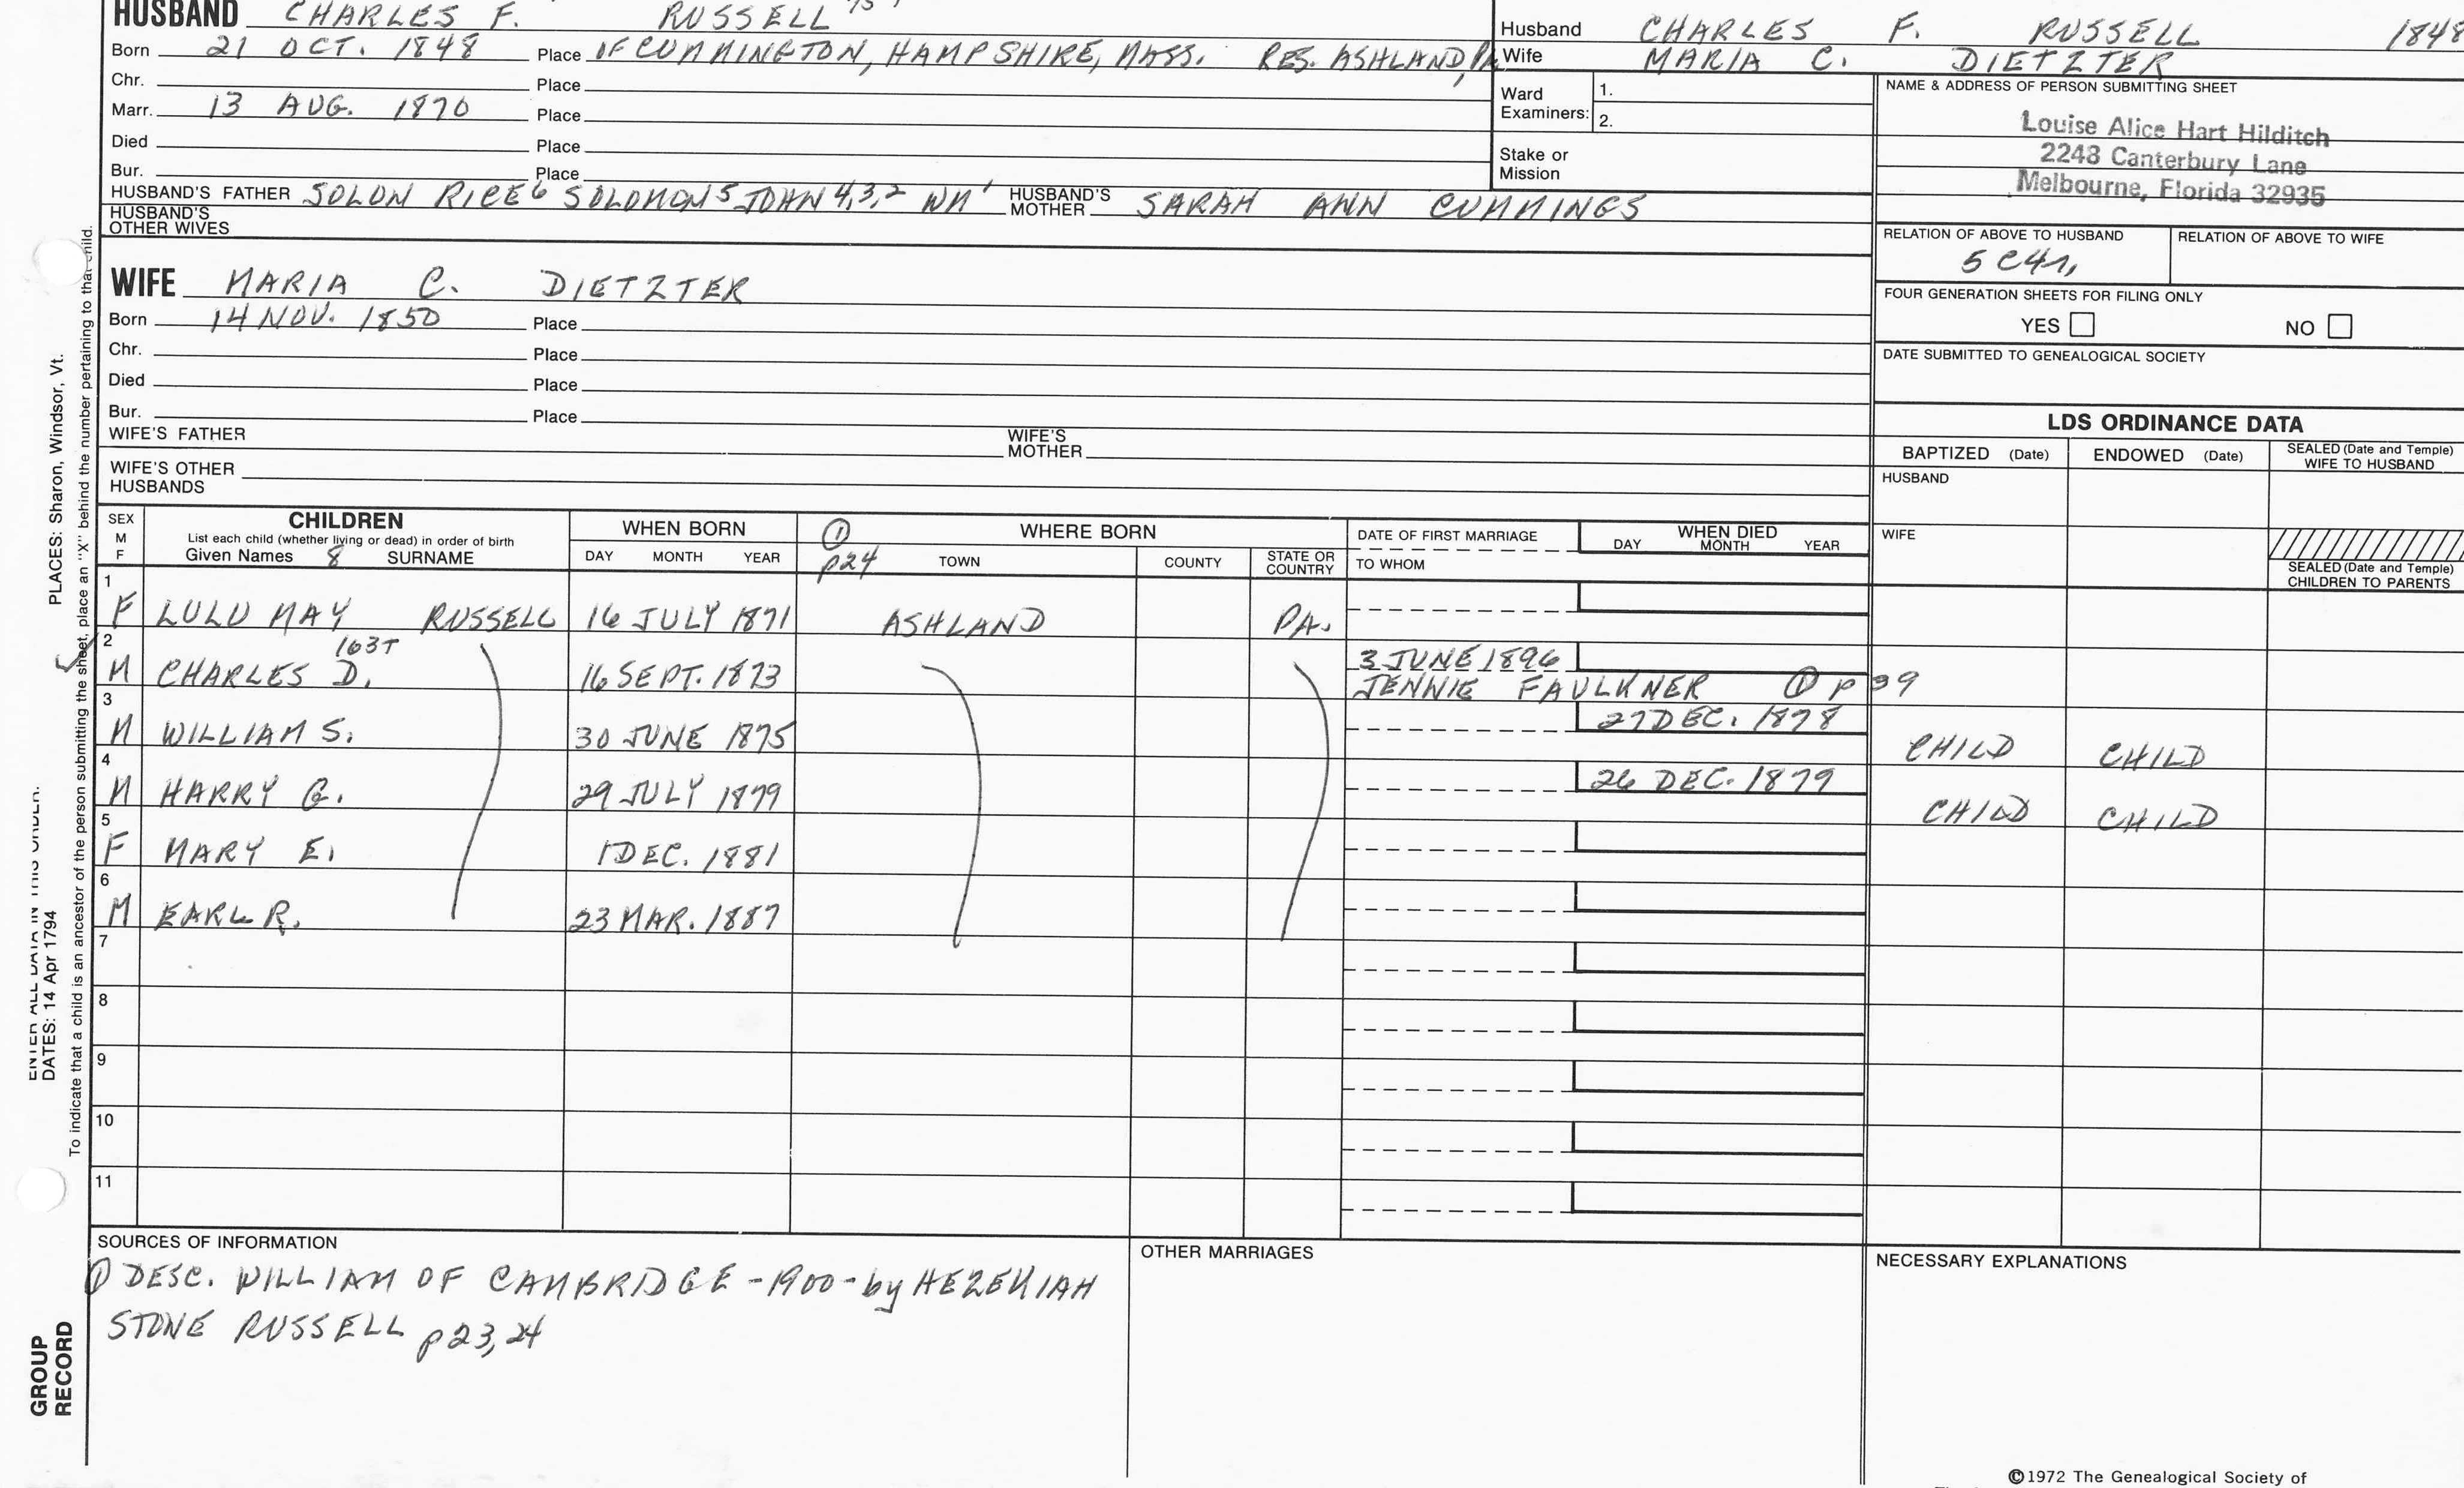 HUSBAND CHARLES F. RUSSELL
Born 21 OCT. 1848 Place OF CUMMINGTON, HAMPSHIRE, MASS. RES. ASHLAND, PA
Chr. Place
Marr. 13 AUG. 1870 Place
Died Place
Bur. Place
HUSBAND'S FATHER SOLON RICE 6 SOLOMON 5 JOHN 4,3,2 WM' HUSBAND'S MOTHER SARAH ANN CUMMINGS
HUSBAND'S OTHER WIVES
Husband CHARLES F. RUSSELL 1848
Wife MARIA C. DIETZTER
Ward Examiners: 1.
2.
Stake or Mission
NAME & ADDRESS OF PERSON SUBMITTING SHEET
Louise Alice Hart Hilditch
2248 Canterbury Lane
Melbourne, Florida 32935
RELATION OF ABOVE TO HUSBAND RELATION OF ABOVE TO WIFE
FOUR GENERATION SHEETS FOR FILING ONLY
YES NO
DATE SUBMITTED TO GENEALOGICAL SOCIETY
WIFE MARIA C. DIETZTER
Born 14 NOV. 1850 Place
Chr. Place
Died Place
Bur. Place
WIFE'S FATHER WIFE'S MOTHER
WIFE'S OTHER HUSBANDS
LDS ORDINANCE DATA
BAPTIZED (Date) ENDOWED (Date) SEALED (Date and Temple) WIFE TO HUSBAND
HUSBAND
WIFE
SEALED (Date and Temple) CHILDREN TO PARENTS
SEX M F
CHILDREN
List each child (whether living or dead) in order of birth
Given Names 8 SURNAME
WHEN BORN
DAY MONTH YEAR
① p24 WHERE BORN
TOWN COUNTY STATE OR COUNTRY
DATE OF FIRST MARRIAGE
TO WHOM
WHEN DIED
DAY MONTH YEAR
1 F LULU MAY RUSSELL 16 JULY 1871 ASHLAND PA.
2 M CHARLES D. 163T 16 SEPT. 1873 3 JUNE 1896
JENNIE FAULKNER ① p 39
3 M WILLIAM S. 30 JUNE 1875 27 DEC. 1878 CHILD CHILD
4 M HARRY G. 29 JULY 1879 26 DEC. 1879 CHILD CHILD
5 F MARY E. 1 DEC. 1881
6 M EARL R. 23 MAR. 1887
7
8
9
10
11
SOURCES OF INFORMATION
① DESC. WILLIAM OF CAMBRIDGE - 1900 - by HEZEKIAH
STONE RUSSELL p23, 24
OTHER MARRIAGES
NECESSARY EXPLANATIONS
©1972 The Genealogical Society of
PLACES: Sharon, Windsor, Vt.
DATES: 14 Apr 1794
To indicate that a child is an ancestor of the person submitting the sheet, place an "X" behind the number pertaining to that child.
GROUP
RECORD